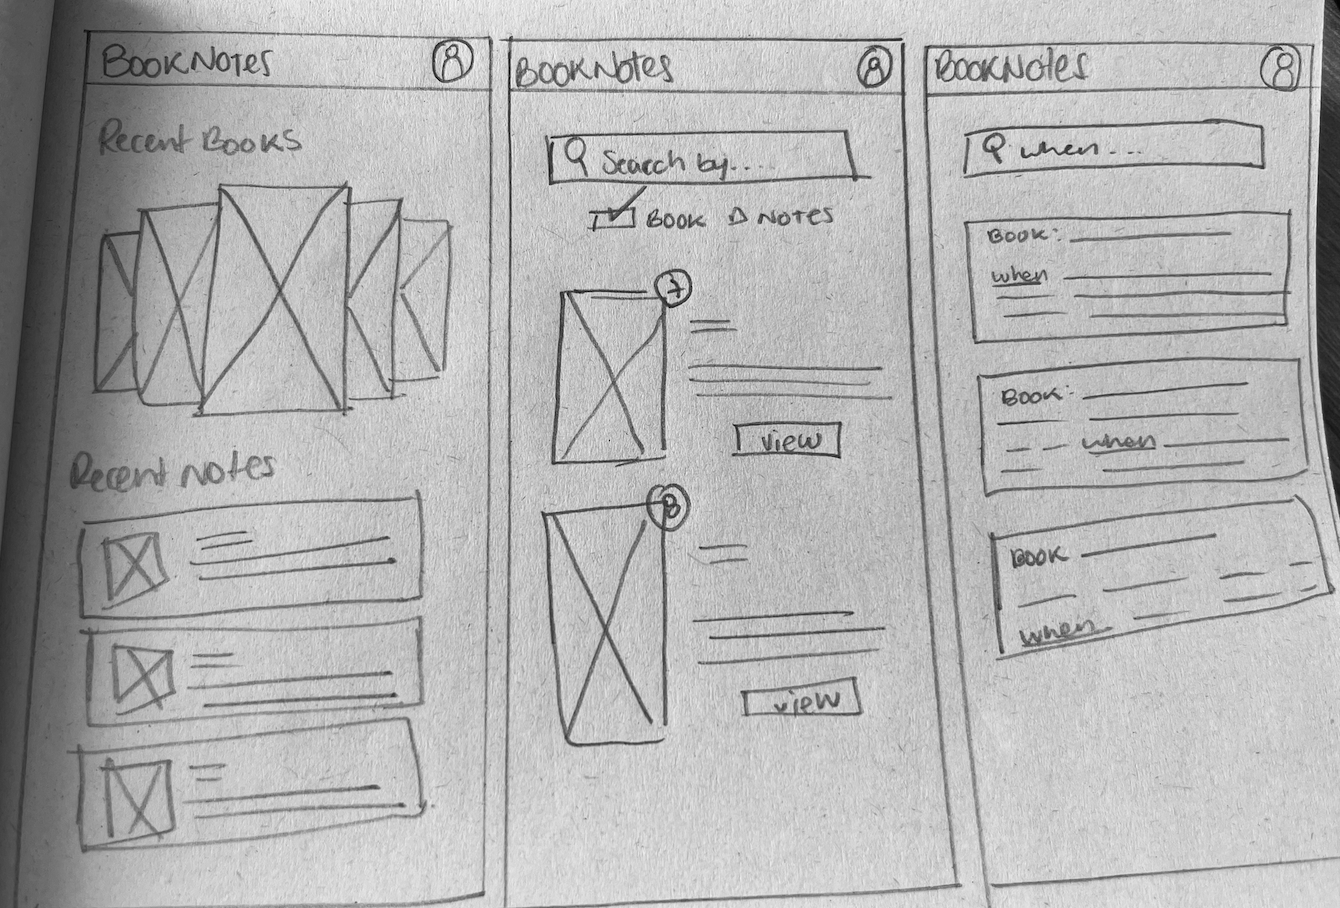 BOOKNOTES
Recent BOOKS
Recent NOTES
BOOKNOTES
Search by....
BOOK NOTES
7
view
8
view
BOOKNOTES
when...
BOOK:
when
BOOK:
when
BOOK
when